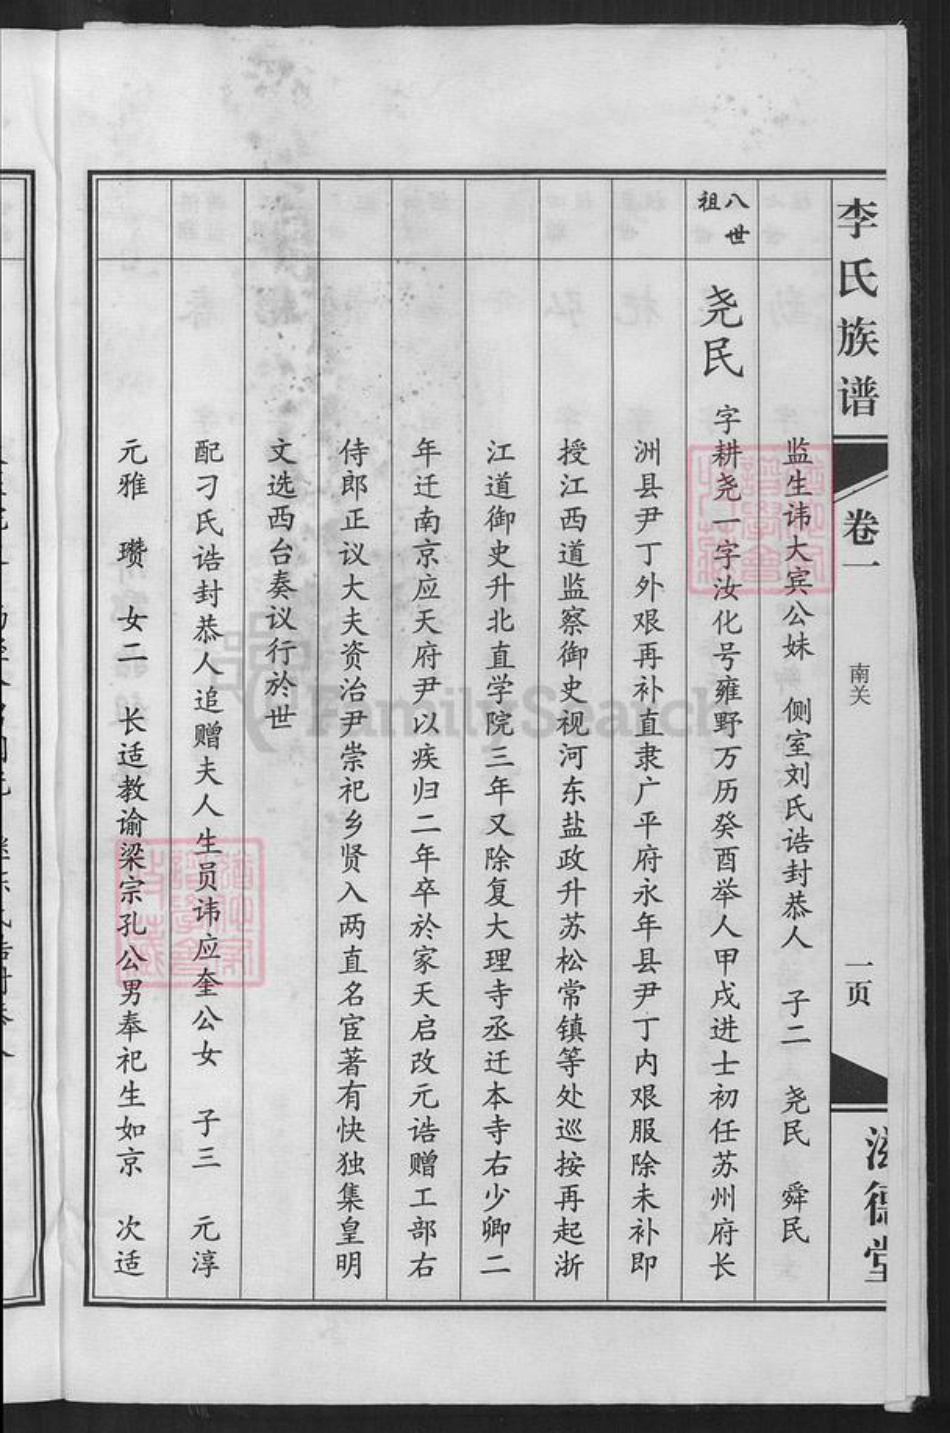 李氏族谱
卷一
南关
一页
滋德堂
监生讳大宾公妹 侧室刘氏诰封恭人 子二 尧民 舜民
八世祖
尧民 字耕尧一字汝化号雍野万历癸酉举人甲戌进士初任苏州府长
洲县尹丁外艰再补直隶广平府永年县尹丁内艰服除未补即
授江西道监察御史视河东盐政升苏松常镇等处巡按再起浙
江道御史升北直学院三年又除复大理寺丞迁本寺右少卿二
年迁南京应天府尹以疾归二年卒於家天启改元诰赠工部右
侍郎正议大夫资治尹崇祀乡贤入两直名宦著有快独集皇明
文选西台奏议行於世
配刁氏诰封恭人追赠夫人生员讳应奎公女 子三 元淳
元雅 瓒 女二 长适教谕梁宗孔公男奉祀生如京 次适
FamilySearch